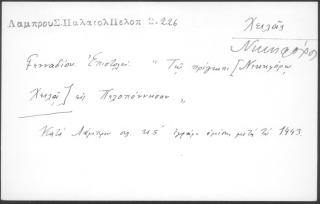 Λάμπρου Σ. Παλαιολ Πελοπ 2.226
Χειλᾶς
Νικηφόρος
Γενναδίου Ἐπιστολαί "Τῷ πρίγκιπι [Νικηφόρῳ
Χειλᾷ] εἰς Πελοπόννησον"
Κατά Λάμπρο σελ. με' ἐγράφη ὀλίγον μετά τό 1443